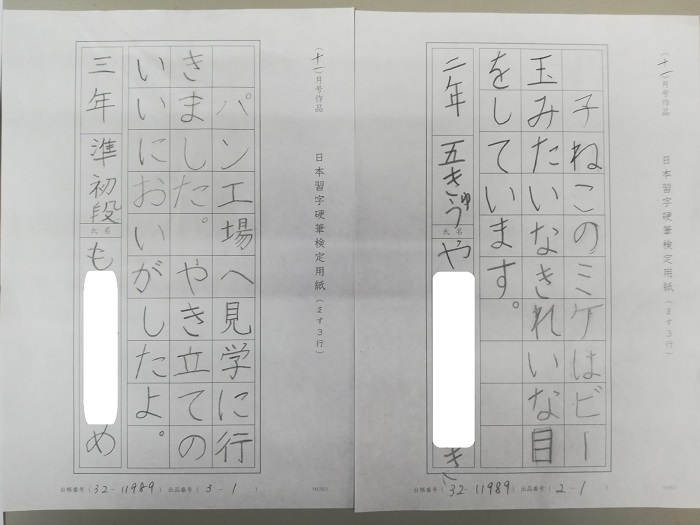 (十一)月号作品
日本習字硬筆検定用紙(ます3行)
子ねこのミケはビー
玉みたいなきれいな目
をしています。
二年 五きゅう 氏名 や き
(32-11989) 出品番号(2-1)
(十一)月号作品
日本習字硬筆検定用紙(ます3行)
パン工場へ見学に行
きました。やき立ての
いいにおいがしたよ。
三年 準初段 氏名 も め
(32-11989) 出品番号(3-1)